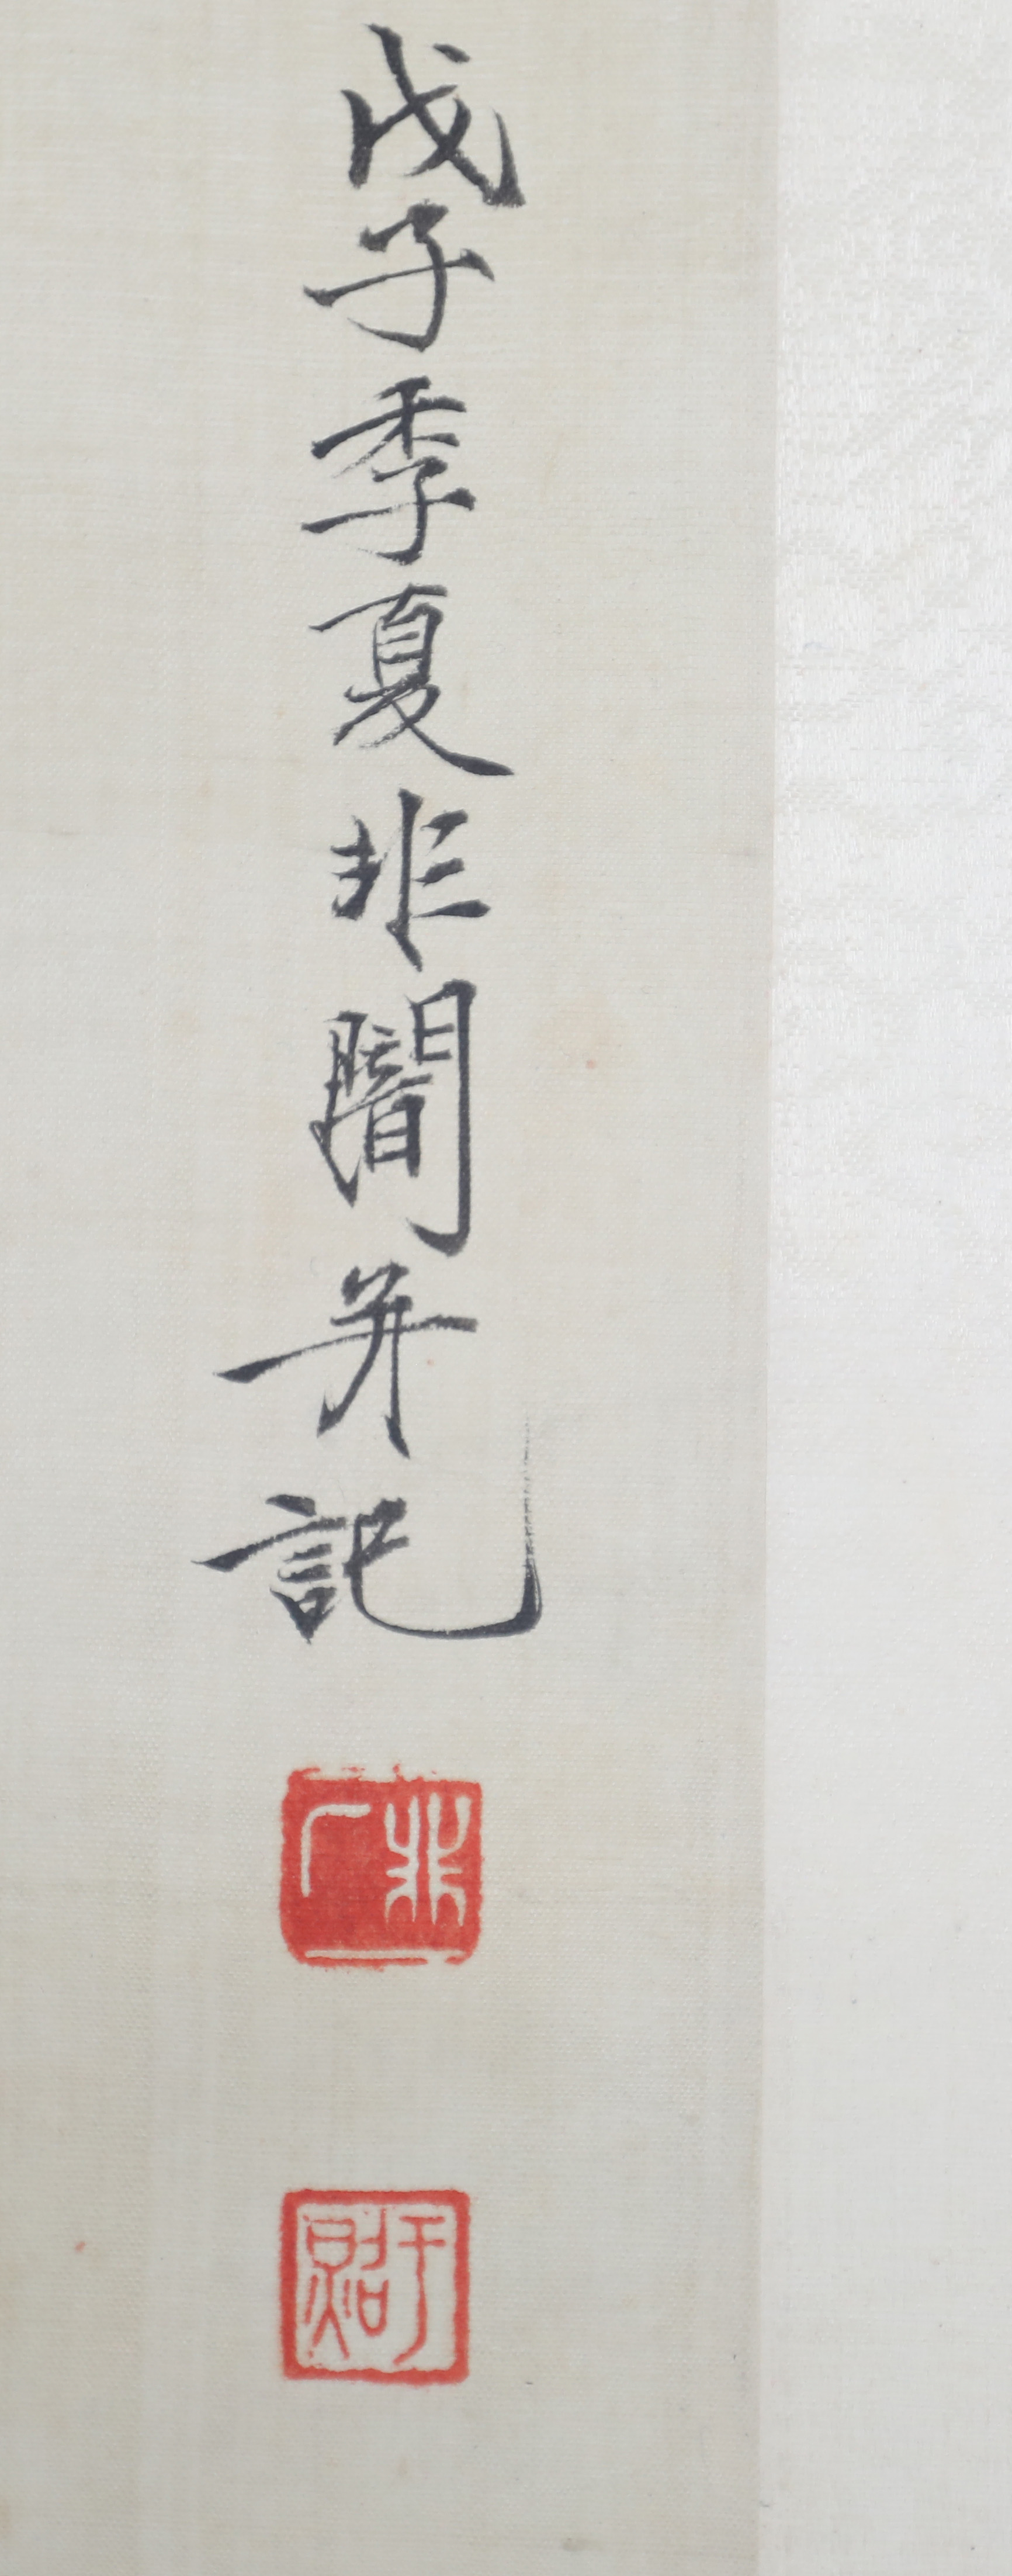 戊子季夏非闇并記
非厂
于照